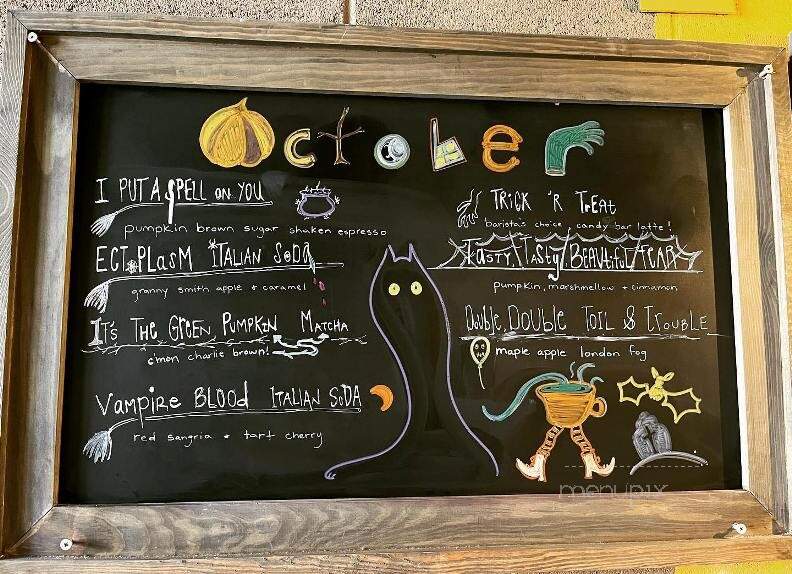 October
I PUT A SPELL ON YOU
pumpkin brown sugar shaken espresso
ECTOPLASM ITALIAN SODA
granny smith apple + caramel
IT'S THE GREEN PUMPKIN MATCHA
c'mon charlie brown!
VAMPIRE BLOOD ITALIAN SODA
red sangria + tart cherry
TRICK 'R TREAT
barista's choice, candy bar latte!
TASTY, TASTY, BEAUTIFUL FEAR
pumpkin, marshmellow + cinnamon
DOUBLE, DOUBLE TOIL & TROUBLE
maple apple london fog
menupix